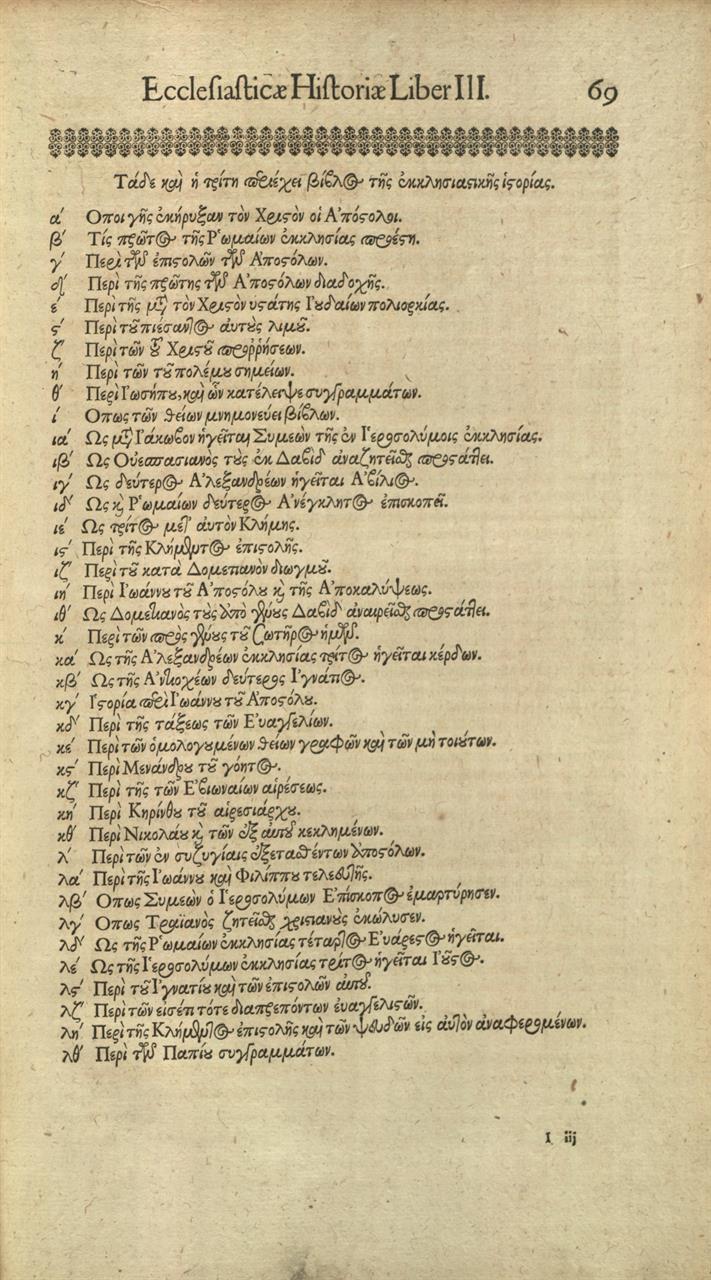 Ecclesiasticæ Historiæ Liber III. 69
Τάδε καὶ ἡ τρίτη περιέχει βίβλος τῆς ἐκκλησιαστικῆς ἱστορίας.
α΄ Οποι γῆς ἐκήρυξαν τὸν Χριστὸν οἱ Ἀπόστολοι.
β΄ Τίς πρῶτος τῆς Ῥωμαίων ἐκκλησίας προέστη.
γ΄ Περὶ τῶν ἐπιστολῶν τῶν Ἀποστόλων.
δ΄ Περὶ τῆς πρώτης τῶν Ἀποστόλων διαδοχῆς.
ε΄ Περὶ τῆς μετὰ τὸν Χριστὸν ὑστάτης Ἰουδαίων πολιορκίας.
ϛ΄ Περὶ τοῦ πιέσαντος αὐτοὺς λιμοῦ.
ζ΄ Περὶ τῶν τοῦ Χριστοῦ προῤῥήσεων.
η΄ Περὶ τῶν τοῦ πολέμου σημείων.
θ΄ Περὶ Ἰωσήπου, καὶ ὧν κατέλειψε συγγραμμάτων.
ί Οπως τῶν θείων μνημονεύει βίβλων.
ια΄ Ως μετὰ Ἰάκωβον ἡγεῖται Συμεὼν τῆς ἐν Ἱεροσολύμοις ἐκκλησίας.
ιβ΄ Ως Οὐεσπασιανὸς τοὺς ἐκ Δαβὶδ ἀναζητεῖσθαι προστάττει.
ιγ΄ Ως δεύτερος Ἀλεξανδρέων ἡγεῖται Ἀβίλιος.
ιδ΄ Ως καὶ Ῥωμαίων δεύτερος Ἀνέγκλητος ἐπισκοπεῖ.
ιέ Ως τρίτος μετ' αὐτὸν Κλήμης.
ιϛ΄ Περὶ τῆς Κλήμεντος ἐπιστολῆς.
ιζ΄ Περὶ τοῦ κατὰ Δομετιανὸν διωγμοῦ.
ιη΄ Περὶ Ἰωάννου τοῦ Ἀποστόλου καὶ τῆς Ἀποκαλύψεως.
ιθ΄ Ως Δομετιανὸς τοὺς ἀπὸ γένους Δαβὶδ ἀναιρεῖσθαι προστάττει.
κ΄ Περὶ τῶν πρὸς γένους τοῦ ζωτῆρος ἡμῶν.
κα΄ Ως τῆς Ἀλεξανδρέων ἐκκλησίας τρίτος ἡγεῖται κέρδων.
κβ΄ Ως τῆς Ἀντιοχέων δεύτερος Ἰγνάτιος.
κγ΄ Ἱστορία περὶ Ἰωάννου τοῦ Ἀποστόλου.
κδ΄ Περὶ τῆς τάξεως τῶν Εὐαγγελίων.
κε΄ Περὶ τῶν ὁμολογουμένων θείων γραφῶν καὶ τῶν μὴ τοιούτων.
κϛ΄ Περὶ Μενάνδρου τοῦ γόητος.
κζ΄ Περὶ τῆς τῶν Ἐβιωναίων αἱρέσεως.
κη΄ Περὶ Κηρίνθου τοῦ αἱρεσιάρχου.
κθ΄ Περὶ Νικολάου καὶ τῶν ἐξ αὐτοῦ κεκλημένων.
λ΄ Περὶ τῶν ἐν συζυγίαις ἐξετασθέντων ἀποστόλων.
λα΄ Περὶ τῆς Ἰωάννου καὶ Φιλίππου τελευτῆς.
λβ΄ Οπως Συμεὼν ὁ Ἱεροσολύμων Ἐπίσκοπος ἐμαρτύρησεν.
λγ΄ Οπως Τραϊανὸς ζητεῖσθαι χριστιανοὺς ἐκώλυσεν.
λδ΄ Ως τῆς Ῥωμαίων ἐκκλησίας τέταρτος Εὐάρεστος ἡγεῖται.
λέ Ως τῆς Ἱεροσολύμων ἐκκλησίας τρίτος ἡγεῖται Ἰοῦστος.
λϛ΄ Περὶ τοῦ Ἰγνατίου καὶ τῶν ἐπιστολῶν αὐτοῦ.
λζ΄ Περὶ τῶν εἰσέπι τότε διαπρεπόντων ἐυαγγελιστῶν.
λη΄ Περὶ τῆς Κλήμεντος ἐπιστολῆς καὶ τῶν ψευδῶν εἰς αὐτὸν ἀναφερομένων.
λθ΄ Περὶ τῶν Παπίου συγγραμμάτων.
I iij